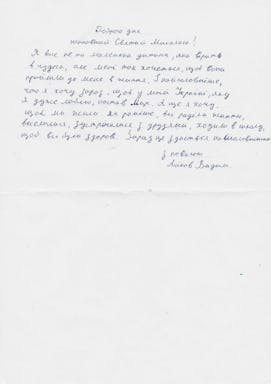 Доброго дня
шановний Святой Миколаю!
Я вже не та маленька дитина, яка вірить
в чудеса, але мені так хочеться, щоб вони
прийшли до мене в життя. Найголовніше,
чого я хочу зараз, щоб у моїй Україні, яку
я дуже люблю, настав мир. А ще я хочу,
щоб ми жили як раніше, всі раділи життю,
веселились, зустрічались з друзями, ходили в школу,
щоб всі були здорові. Зараз це здається найважливішим
з повагою
Вадим.